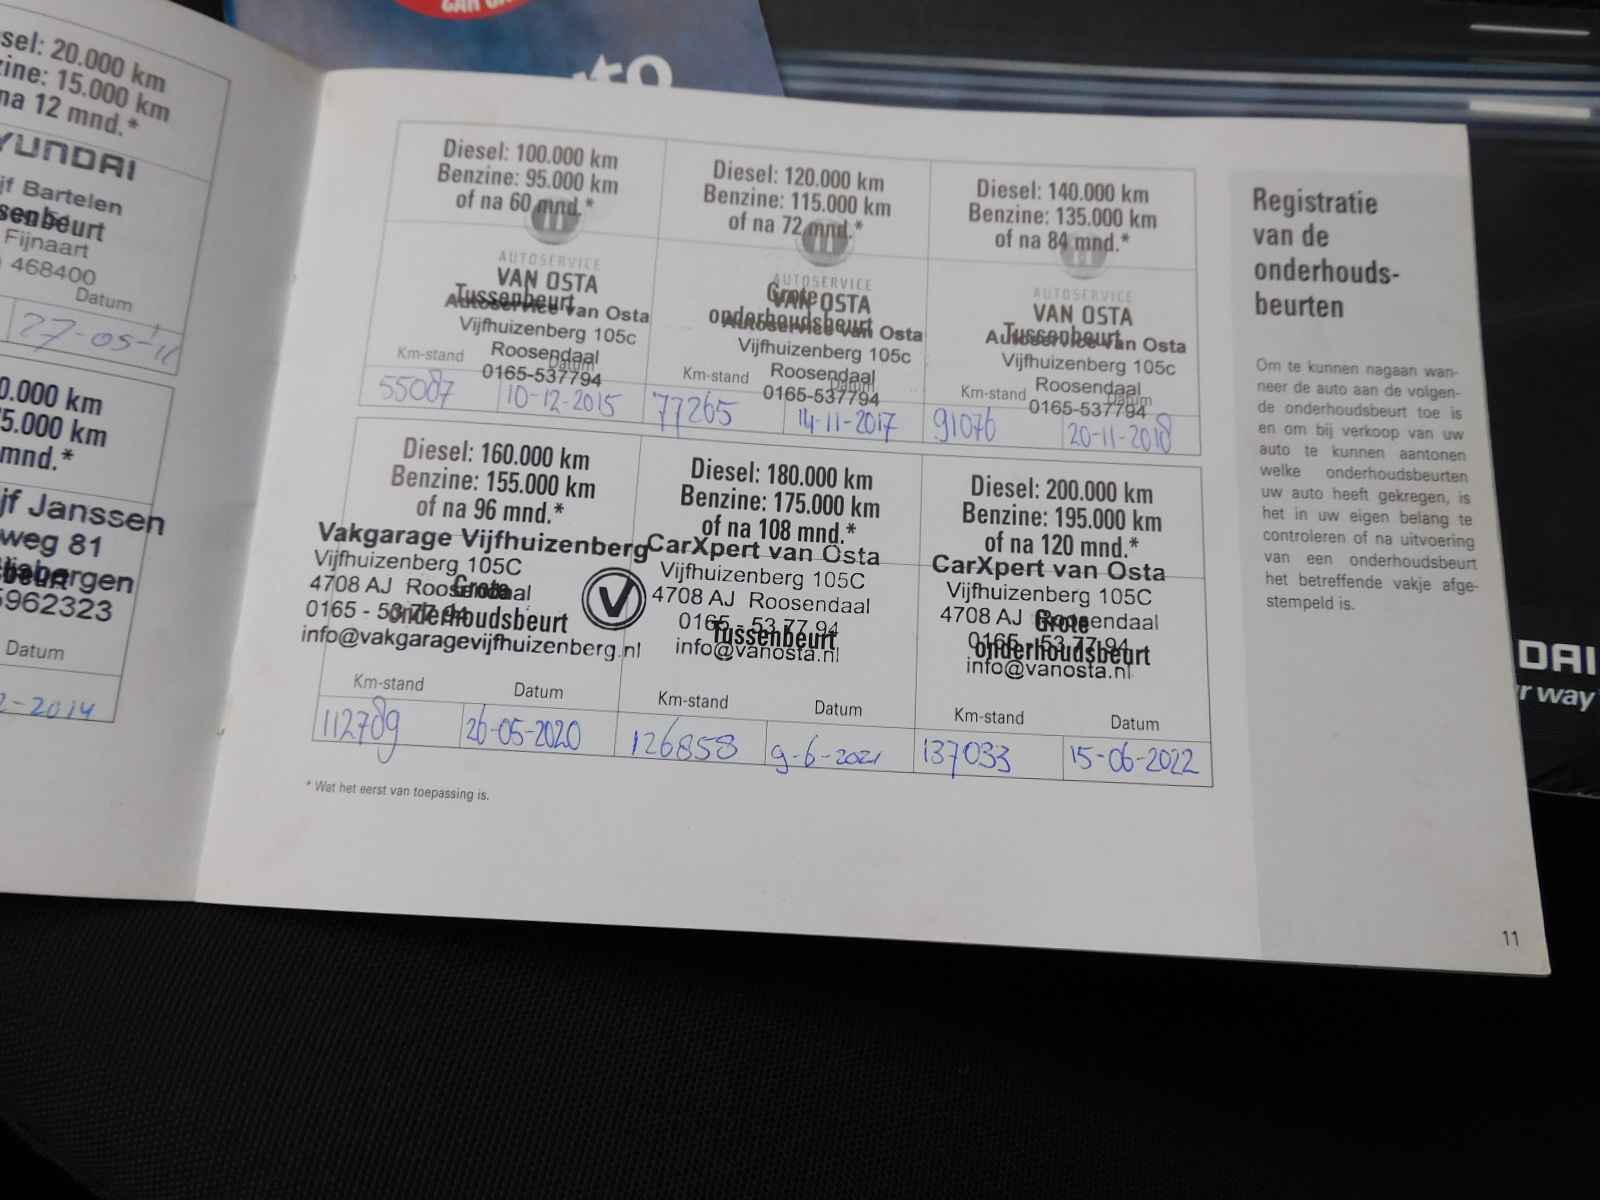 sel: 20.000 km
zine: 15.000 km
na 12 mnd.*
YUNDAI
jf Bartelen
ssenbeurt
Fijnaart
468400
Datum
27-05-'11
0.000 km
5.000 km
mnd.*
jf Janssen
weg 81
beurt
bergen
5962323
Datum
2-2014
Diesel: 100.000 km
Benzine: 95.000 km
of na 60 mnd.*
AUTOSERVICE
VAN OSTA
Tussenbeurt
Autoservice van Osta
Vijfhuizenberg 105c
Roosendaal
0165-537794
Km-stand Datum
55087 10-12-2015
Diesel: 120.000 km
Benzine: 115.000 km
of na 72 mnd.*
AUTOSERVICE
VAN OSTA
Grote
onderhoudsbeurt
Autoservice van Osta
Vijfhuizenberg 105c
Roosendaal
0165-537794
Km-stand Datum
77265 14-11-2017
Diesel: 140.000 km
Benzine: 135.000 km
of na 84 mnd.*
AUTOSERVICE
VAN OSTA
Tussenbeurt
Autoservice van Osta
Vijfhuizenberg 105c
Roosendaal
0165-537794
Km-stand Datum
91076 20-11-2018
Diesel: 160.000 km
Benzine: 155.000 km
of na 96 mnd.*
Vakgarage Vijfhuizenberg
Vijfhuizenberg 105C
4708 AJ Roosendaal
Grote
0165 - 53 77 94
onderhoudsbeurt
info@vakgaragevijfhuizenberg.nl
V
Km-stand Datum
112789 26-05-2020
Diesel: 180.000 km
Benzine: 175.000 km
of na 108 mnd.*
CarXpert van Osta
Vijfhuizenberg 105C
4708 AJ Roosendaal
0165 - 53 77 94
Tussenbeurt
info@vanosta.nl
Km-stand Datum
126858 9-6-2021
Diesel: 200.000 km
Benzine: 195.000 km
of na 120 mnd.*
CarXpert van Osta
Vijfhuizenberg 105C
4708 AJ Roosendaal
Grote
0165 - 53 77 94
onderhoudsbeurt
info@vanosta.nl
Km-stand Datum
137033 15-06-2022
* Wat het eerst van toepassing is.
Registratie
van de
onderhouds-
beurten
Om te kunnen nagaan wan-
neer de auto aan de volgen-
de onderhoudsbeurt toe is
en om bij verkoop van uw
auto te kunnen aantonen
welke onderhoudsbeurten
uw auto heeft gekregen, is
het in uw eigen belang te
controleren of na uitvoering
van een onderhoudsbeurt
het betreffende vakje afge-
stempeld is.
11
DAI
r way